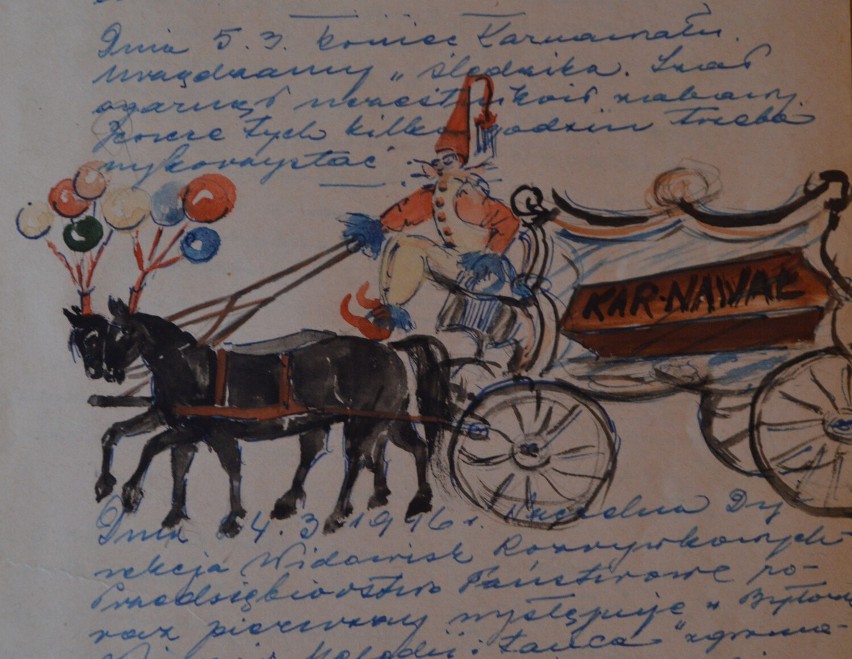 Dnia 5. 3. koniec Karnawału.
Urządzamy „Śledzika. Szał
ogarnął uczestników zabawy
Jeszcze tych kilka godzin trzeba
wykorzystać
KAR-NAWAŁ
Dnia 4. 3. 1946 r. Naczelna Dy-
rekcja Widowisk Rozrywkowych
Przedsiębiorstwo Państwowe po-
raz pierwszy występuje w Bytowie
Melodii i Tańca"